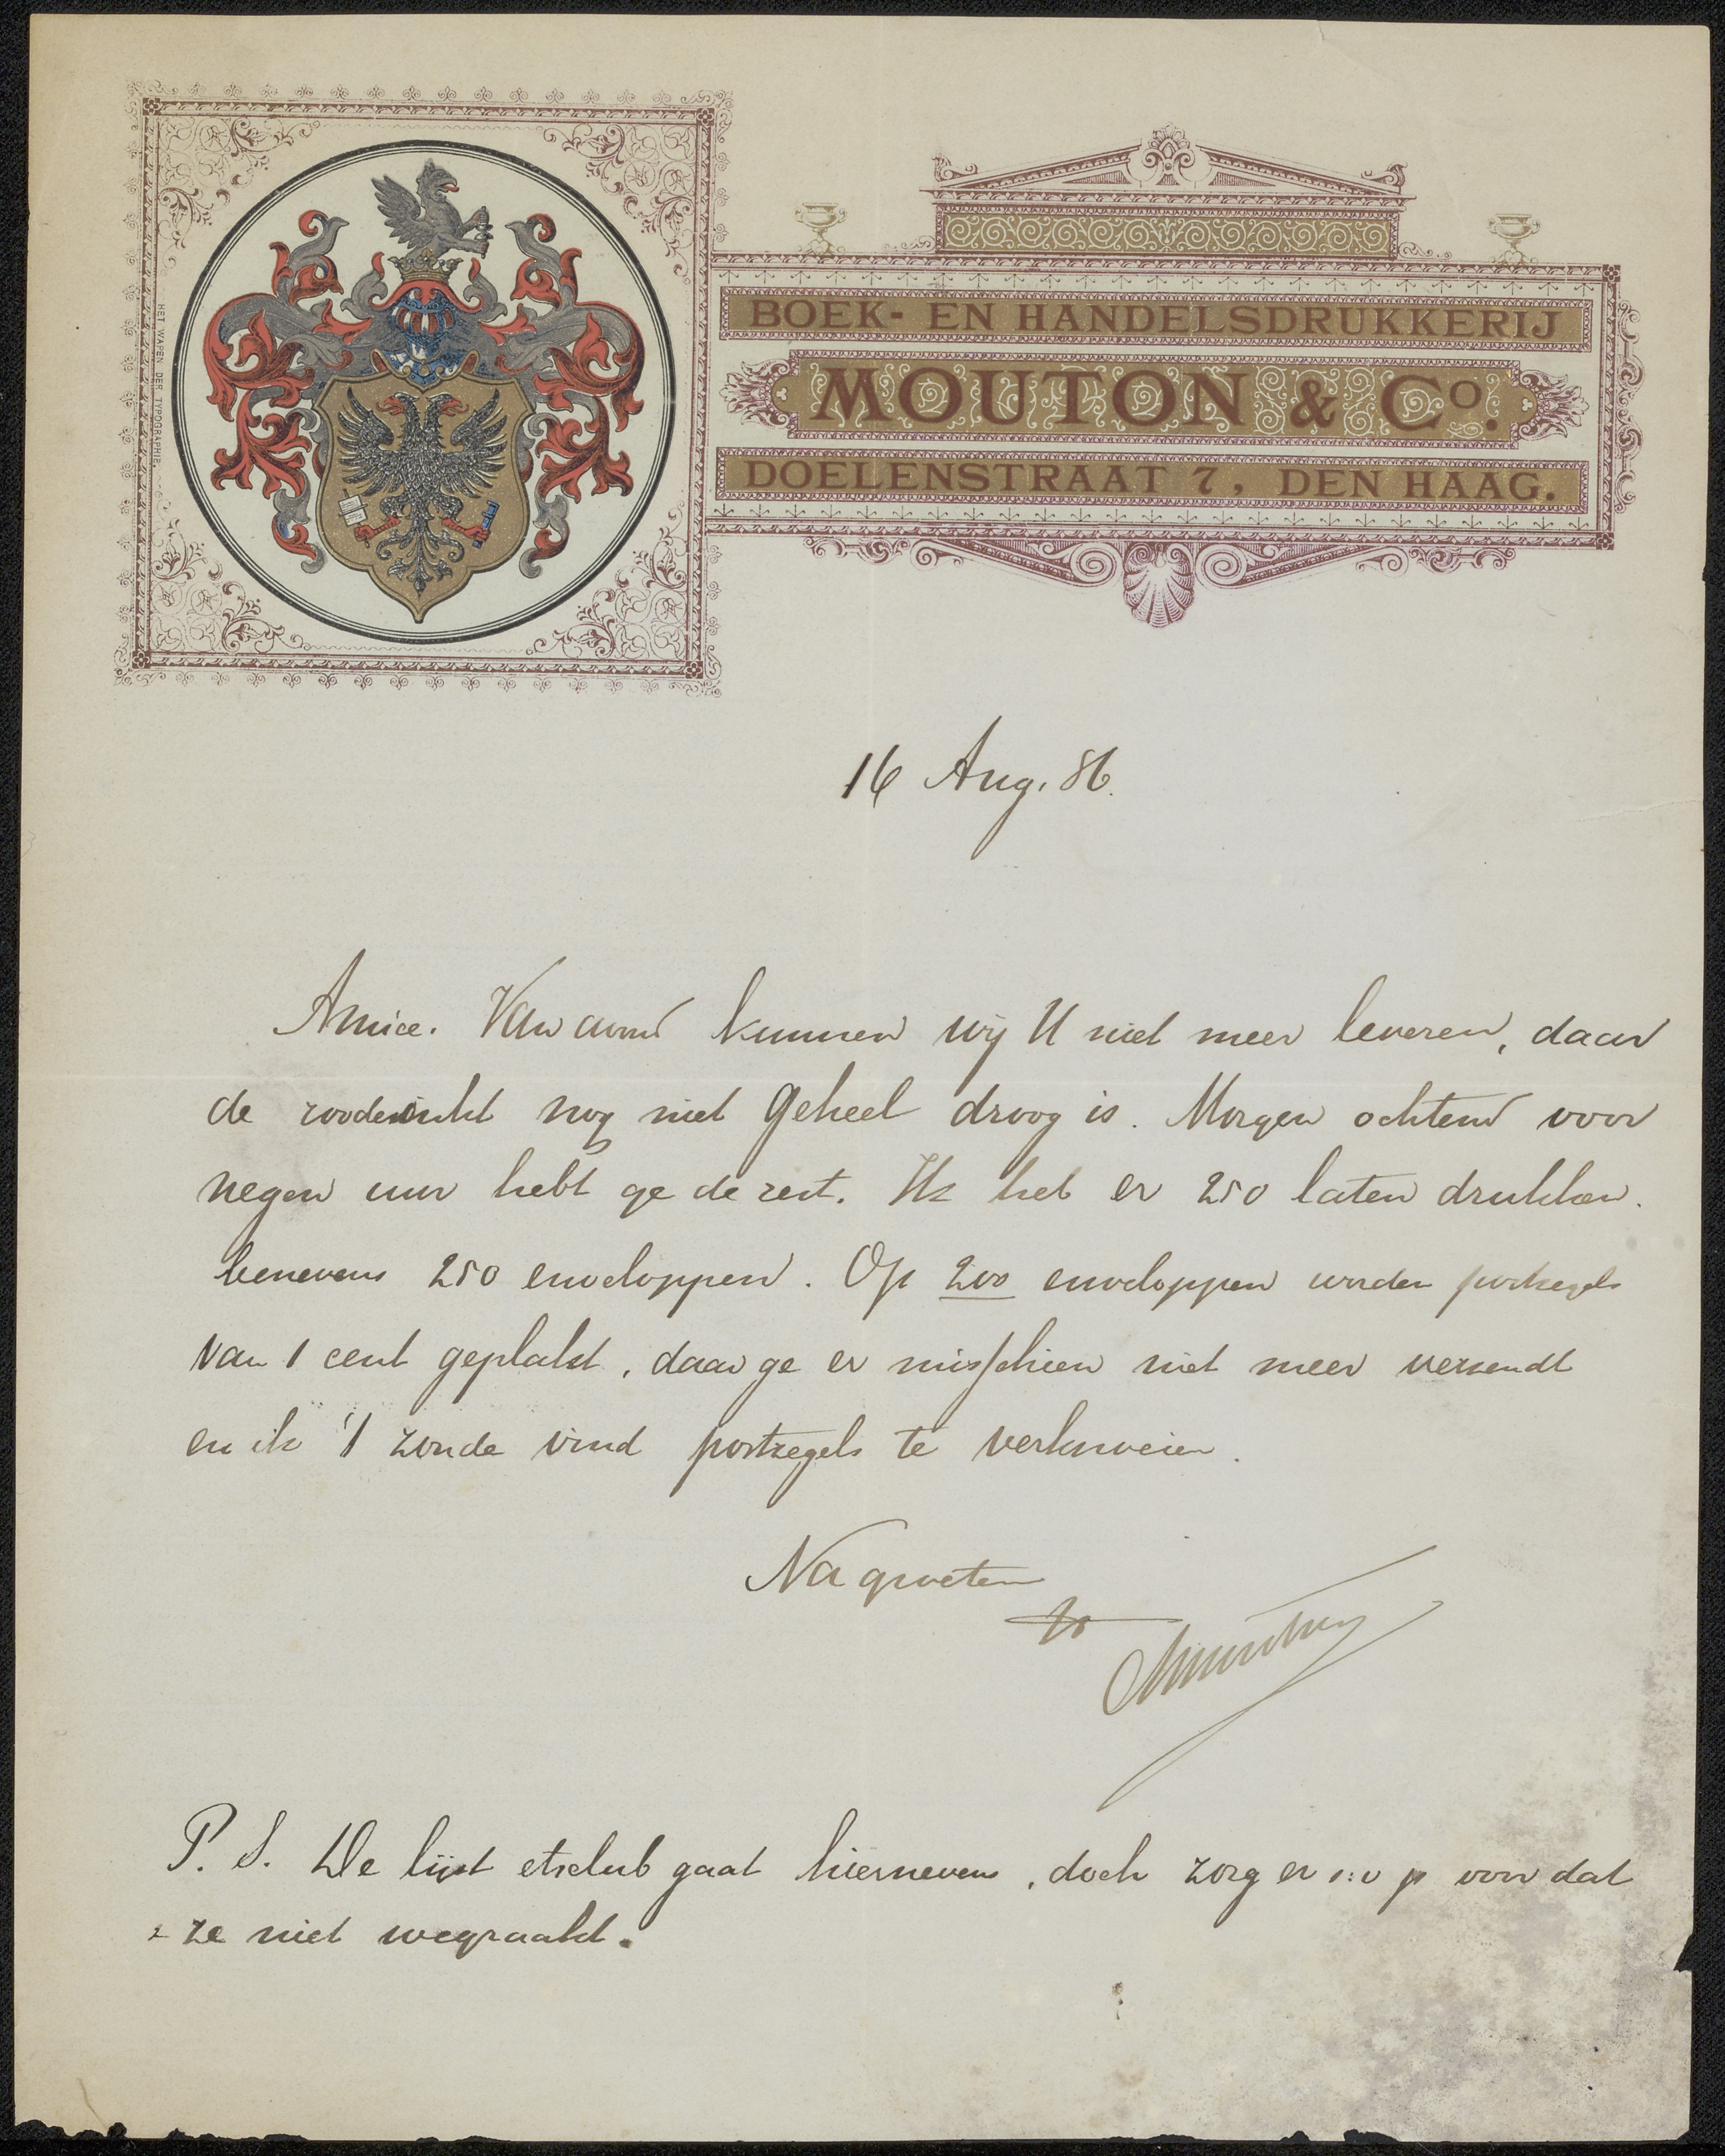 HET WAPEN DER TYPOGRAPHIE.
BOEK- EN HANDELSDRUKKERIJ
MOUTON & Co.
DOELENSTRAAT 7, DEN HAAG.
16 Aug. 86.
Amice. Van avond kunnen wij U niet meer leveren, daar
de roode inkt nog niet geheel droog is. Morgen ochtend voor
negen uur hebt ge de rest. Ik heb er 250 laten drukken.
benevens 250 enveloppen. Op 200 enveloppen worden postzegels
van 1 cent geplakt, daar ge er misschien niet meer verzendt
en ik 't zonde vind postzegels te verknoeien.
Na groeten
P. S. De lijst etsclub gaat hiernevens, doch zorg er s.v.p voor dat
ze niet wegraakt.